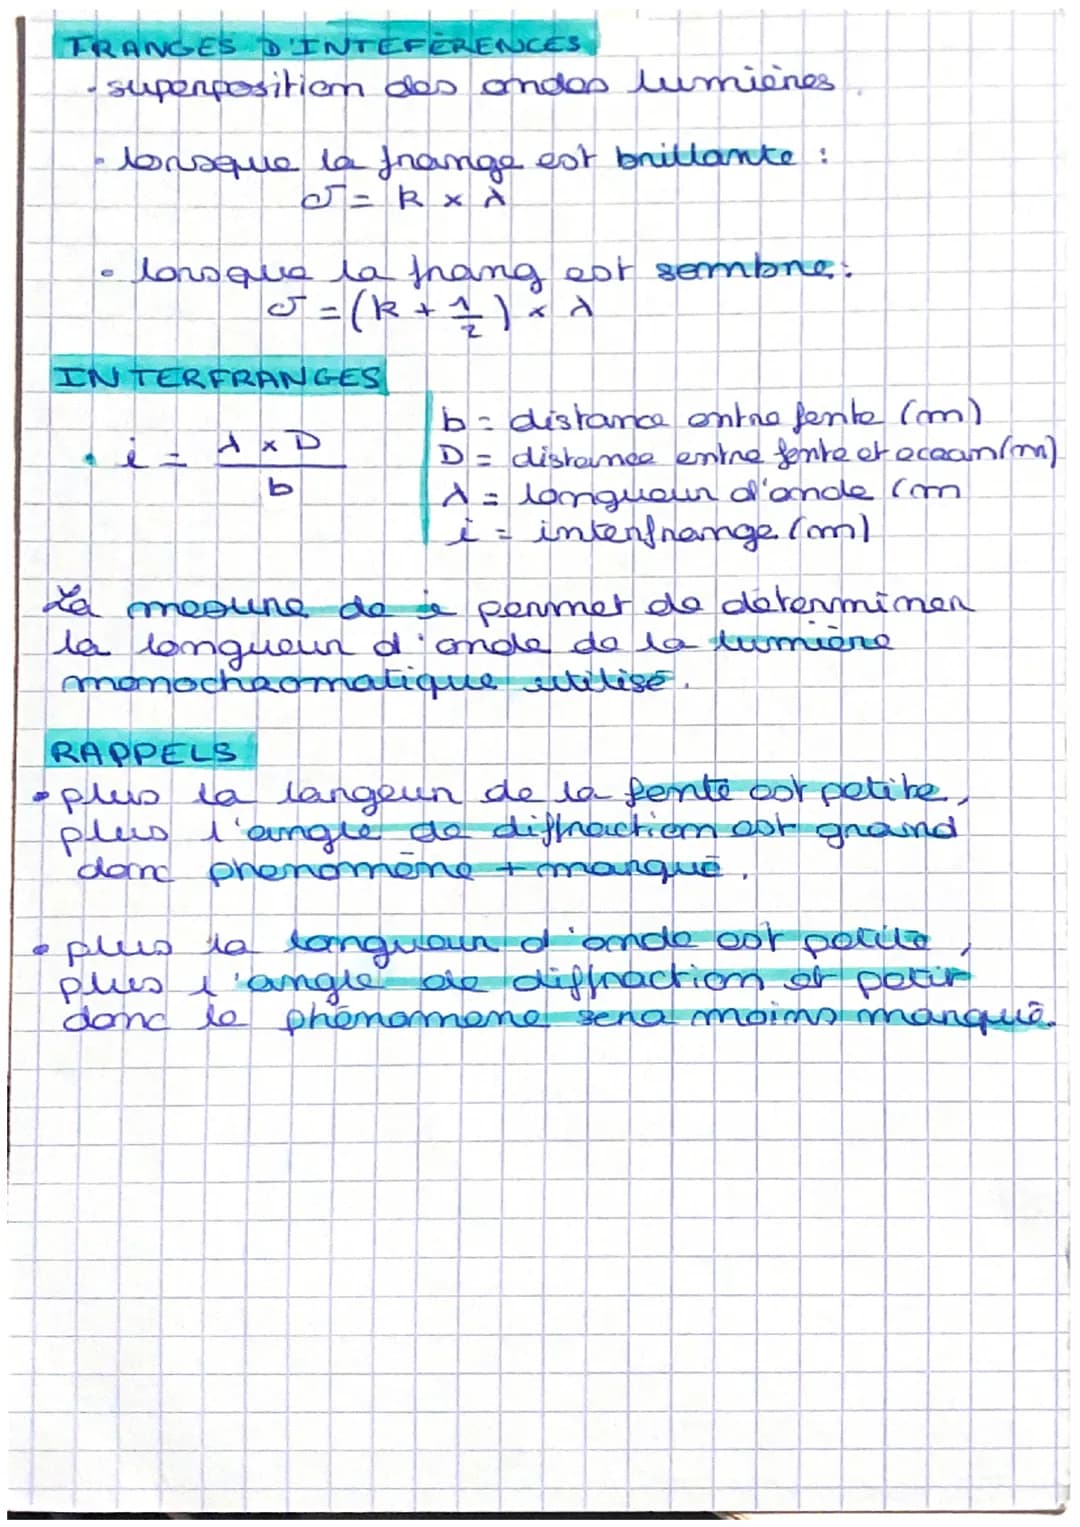 FRANGES D'INTEFÈRENCES
• superposition des ondes lumières.
• lorsque la frange est brillante :
δ = k × λ
• lorsque la frang est sombre :
δ = (k + 1/2) × λ
INTERFRANGES
• i = (λ × D) / b
b = distance entre fente (m)
D = distance entre fente et ecran (m)
λ = longueur d'onde (m
i = interfrange (m)
La mesure de i permet de déterminer
la longueur d'onde de la lumière
monochromatique utilisé.
RAPPELS
• plus la largeur de la fente est petite,
plus l'angle de diffraction est grand
donc phenomène + marqué.
• plus la longueur d'onde est petite,
plus l'angle de diffraction et petit
donc le phénomene sera moins marqué.